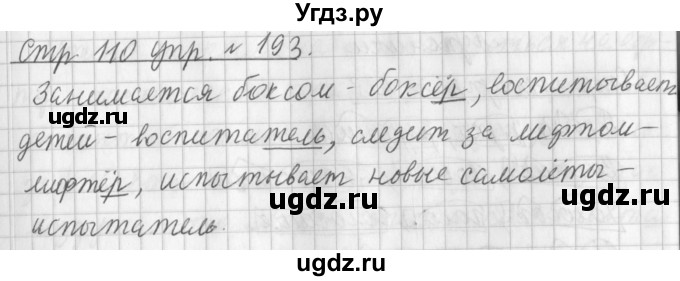 Угдз.ру
Стр. 110 упр. № 193.
Занимается боксом - боксёр, воспитывает
детей - воспитатель, следит за лифтом -
лифтёр, испытывает новые самолёты -
испытатель.
ugdz.ru ugdz.ru
ugdz.ru ugdz.ru
ugdz.ru ugdz.ru
ugdz.ru ugdz.ru